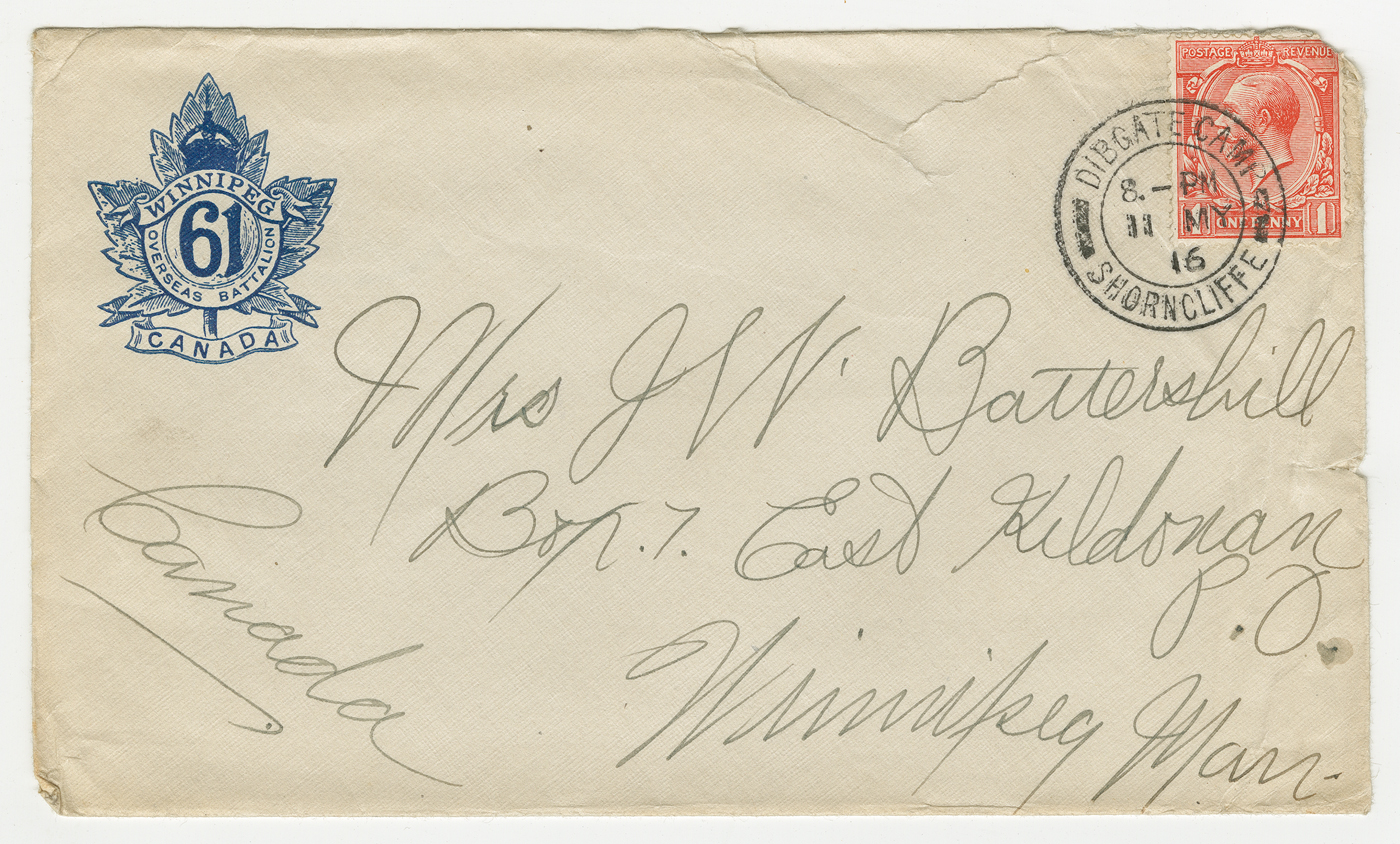 WINNIPEG
61
OVERSEAS BATTALION
CANADA
POSTAGE REVENUE
1 ONE PENNY 1
DIBGATE CAMP
8.- PM
11 MY
16
SHORNCLIFFE
Mrs J W. Battershill
Box. 7. East Kildonan
P.O.
Winnipeg Man.
Canada